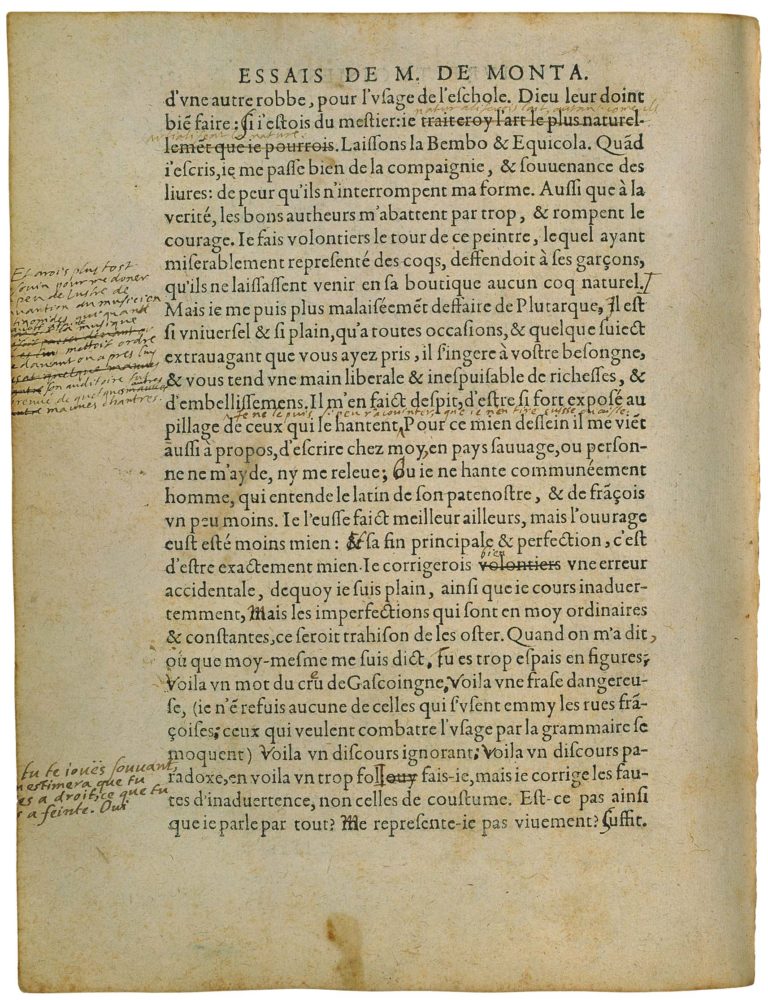 ESSAIS DE M. DE MONTA.
d'vne autre robbe, pour l'vsage de l'eschole. Dieu leur doint
naturaliserois l'art, autant come ils
biē faire: Si i'estois du mestier: ie traiteroy l'art le plus naturel-
artialisent la nature.
lemēt que ie pourrois. Laissons la Bembo & Equicola. Quād
i'escris, ie me passe bien de la compaignie, & souuenance des
liures: de peur qu'ils n'interrompent ma forme. Aussi que à la
verité, les bons autheurs m'abattent par trop, & rompent le
courage. Ie fais volontiers le tour de ce peintre, lequel ayant
miserablement representé des coqs, deffendoit à ses garçons,
qu'ils ne laissassent venir en sa boutique aucun coq naturel.
Et arois plus tost
besouin pour me doner
peu de lustre de
uantion du musicien
tinonides que quant
musique
mettoit ordre
e davant ou apres luy
son auditoire
breuvé de quelques
maures chantres.
Mais ie me puis plus malaiséemēt deffaire de Plutarque, Il est
si vniuersel & si plain, qu'a toutes occasions, & quelque suiect
extrauagant que vous ayez pris, il s'ingere à vostre besongne,
& vous tend vne main liberale & inespuisable de richesses, &
d'embellissemens. Il m'en faict despit, d'estre si fort exposé au
Je ne le puis si peu racointer que ie n'en tire cuisse ou aisle.
pillage de ceux qui le hantent, Pour ce mien dessein il me viēt
aussi à propos, d'escrire chez moy, en pays sauuage, ou person-
ne ne m'ayde, ny me releue; Ou ie ne hante communéement
homme, qui entende le latin de son patenostre, & de frāçois
vn peu moins. Ie l'eusse faict meilleur ailleurs, mais l'ouurage
eust esté moins mien: Et sa fin principale & perfection, c'est
bien
d'estre exactement mien. Ie corrigerois volontiers vne erreur
accidentale, dequoy ie suis plain, ainsi que ie cours inaduer-
temment, Mais les imperfections qui sont en moy ordinaires
& constantes, ce seroit trahison de les oster. Quand on m'a dit,
ou que moy-mesme me suis dict, Tu es trop espais en figures;
Voila vn mot du creu de Gascoingne, Voila vne frase dangereu-
se, (ie n'ē refuis aucune de celles qui s'vsent emmy les rues frā-
çoises; ceux qui veulent combatre l'vsage par la grammaire se
moquent) Voila vn discours ignorant; Voila vn discours pa-
radoxe, en voila vn trop fol ouy fais-ie, mais ie corrige les fau-
tu te ioues souuant,
estimera que tu
es a droit, ce que tu
a feinte. Oui
tes d'inaduertence, non celles de coustume. Est-ce pas ainsi
que ie parle par tout? Me represente-ie pas viuement? Suffit.